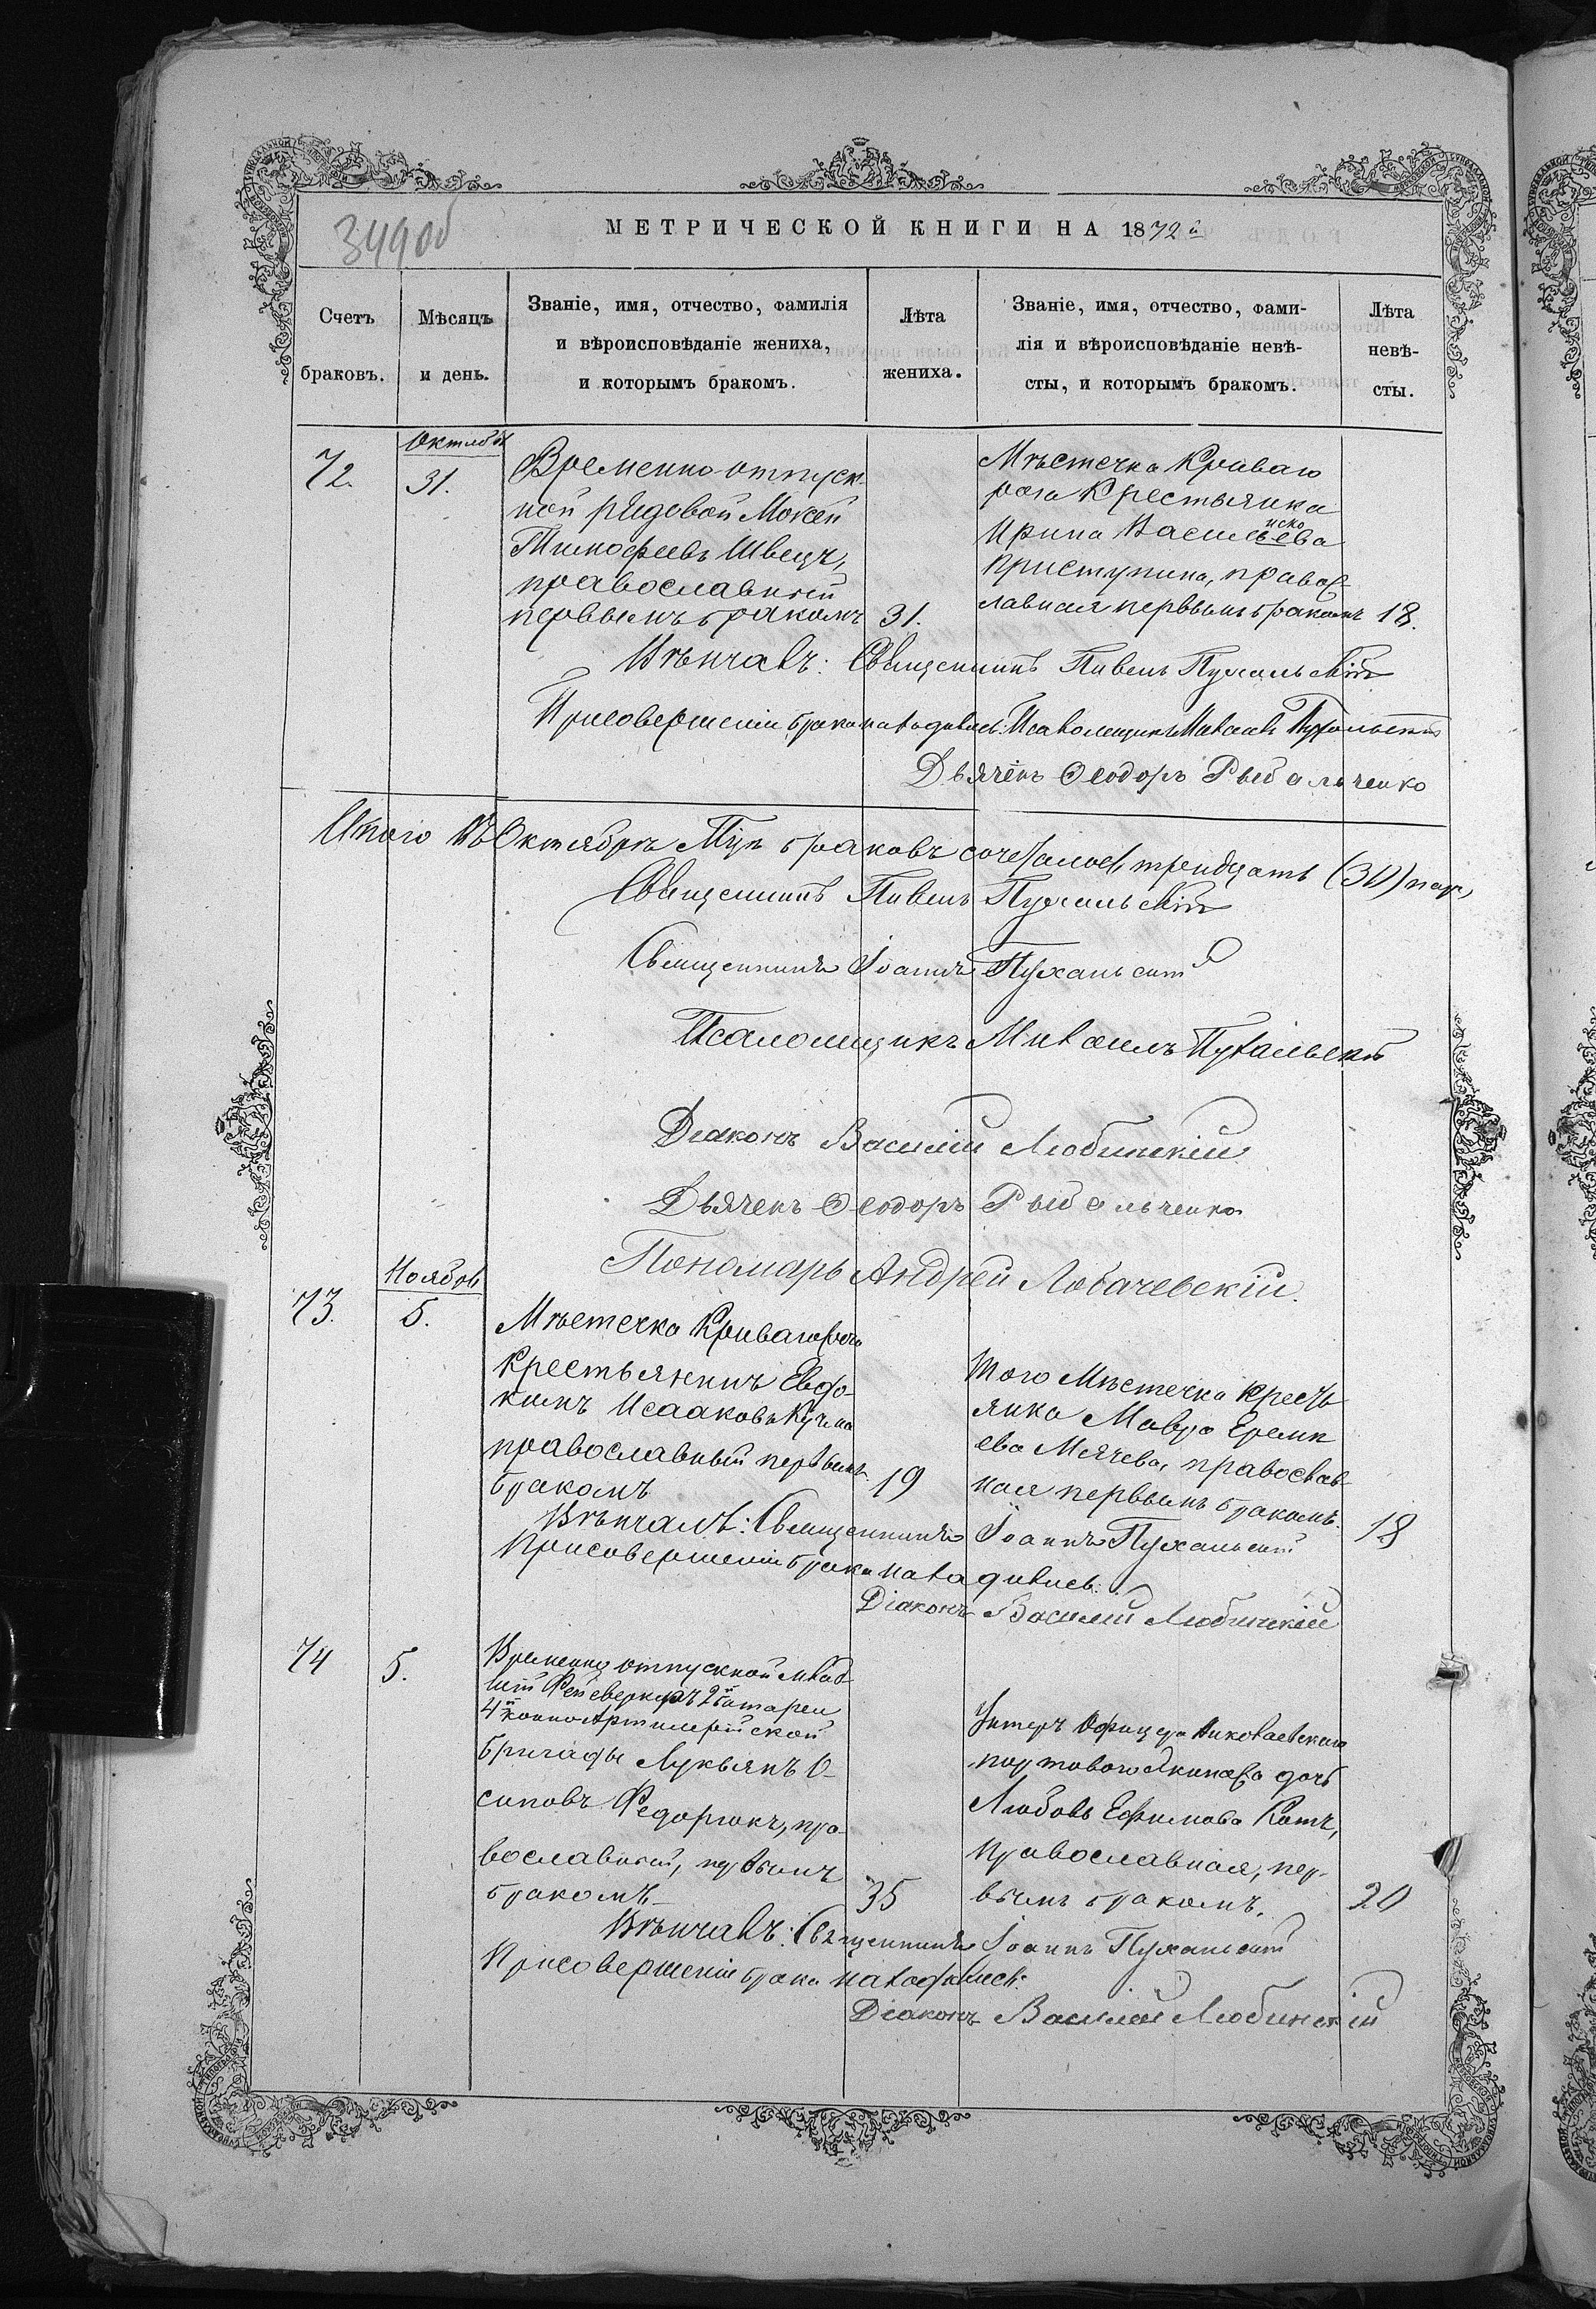 349об
МЕТРИЧЕСКОЙ КНИГИ НА 1872й
Счетъ браковъ.
Мѣсяцъ и день.
Званіе, имя, отчество, фамилія
и вѣроисповѣданіе жениха,
и которымъ бракомъ.
Лѣта
жениха.
Званіе, имя, отчество, фами-
лія и вѣроисповѣданіе невѣ-
сты, и которымъ бракомъ.
Лѣта
невѣ-
сты.
72.
Октябрь
31.
Временно отпуск-
ной рядовой Мокей
Тимофеевъ Швецъ,
православный
первымъ бракомъ
31.
Мѣстечка Криваго
рога Крестьянка
Ирина Васильева
Приступина, правос-
лавная первымъ бракомъ
18.
Вѣнчалъ: Священникъ Павелъ Пухальскій
При совершеніи брака находились: Псаломщикъ Михаилъ Пухальскій
Дьячекъ Ѳеодоръ Рыбальченко
Итого въ Октябрѣ Мцѣ браковъ сочеталось тридцать (30) паръ,
Священникъ Павелъ Пухальскій
Священникъ Іоаннъ Пухальскій
Псаломщикъ Михаилъ Пухальскій
Діаконъ Василій Любинскій
Дьячекъ Ѳеодоръ Рыбальченко
Пономарь Андрей Лобачевскій.
73.
Ноябрь
5.
Мѣстечка Криваго рога
Крестьянинъ Евдо-
кимъ Исааковъ Кучма
православный первымъ
бракомъ
19
Того Мѣстечка Кресть-
янка Мавра Ереми-
ева Мячева, православ-
ная первымъ бракомъ.
18
Вѣнчалъ: Священникъ Іоаннъ Пухальскій
При совершеніи брака находились:
Діаконъ Василій Любинскій
74
5.
Временно отпускной млад-
шій Фейеверкеръ 2й батареи
4й конно Артилерійской
бригады Лукьянъ О-
сиповъ Федорюкъ, пра-
вославный, первымъ
бракомъ
35
Унтеръ Офицера Николаевскаго
портоваго Экипажа дочь
Любовь Ефимова Котъ,
Православная, пер-
вымъ бракомъ.
20
Вѣнчалъ: Священникъ Іоаннъ Пухальскій
При совершеніи брака находились:
Діаконъ Василій Любинскій